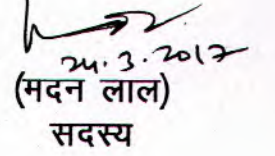 24.3.2017
(मदन लाल)
सदस्य